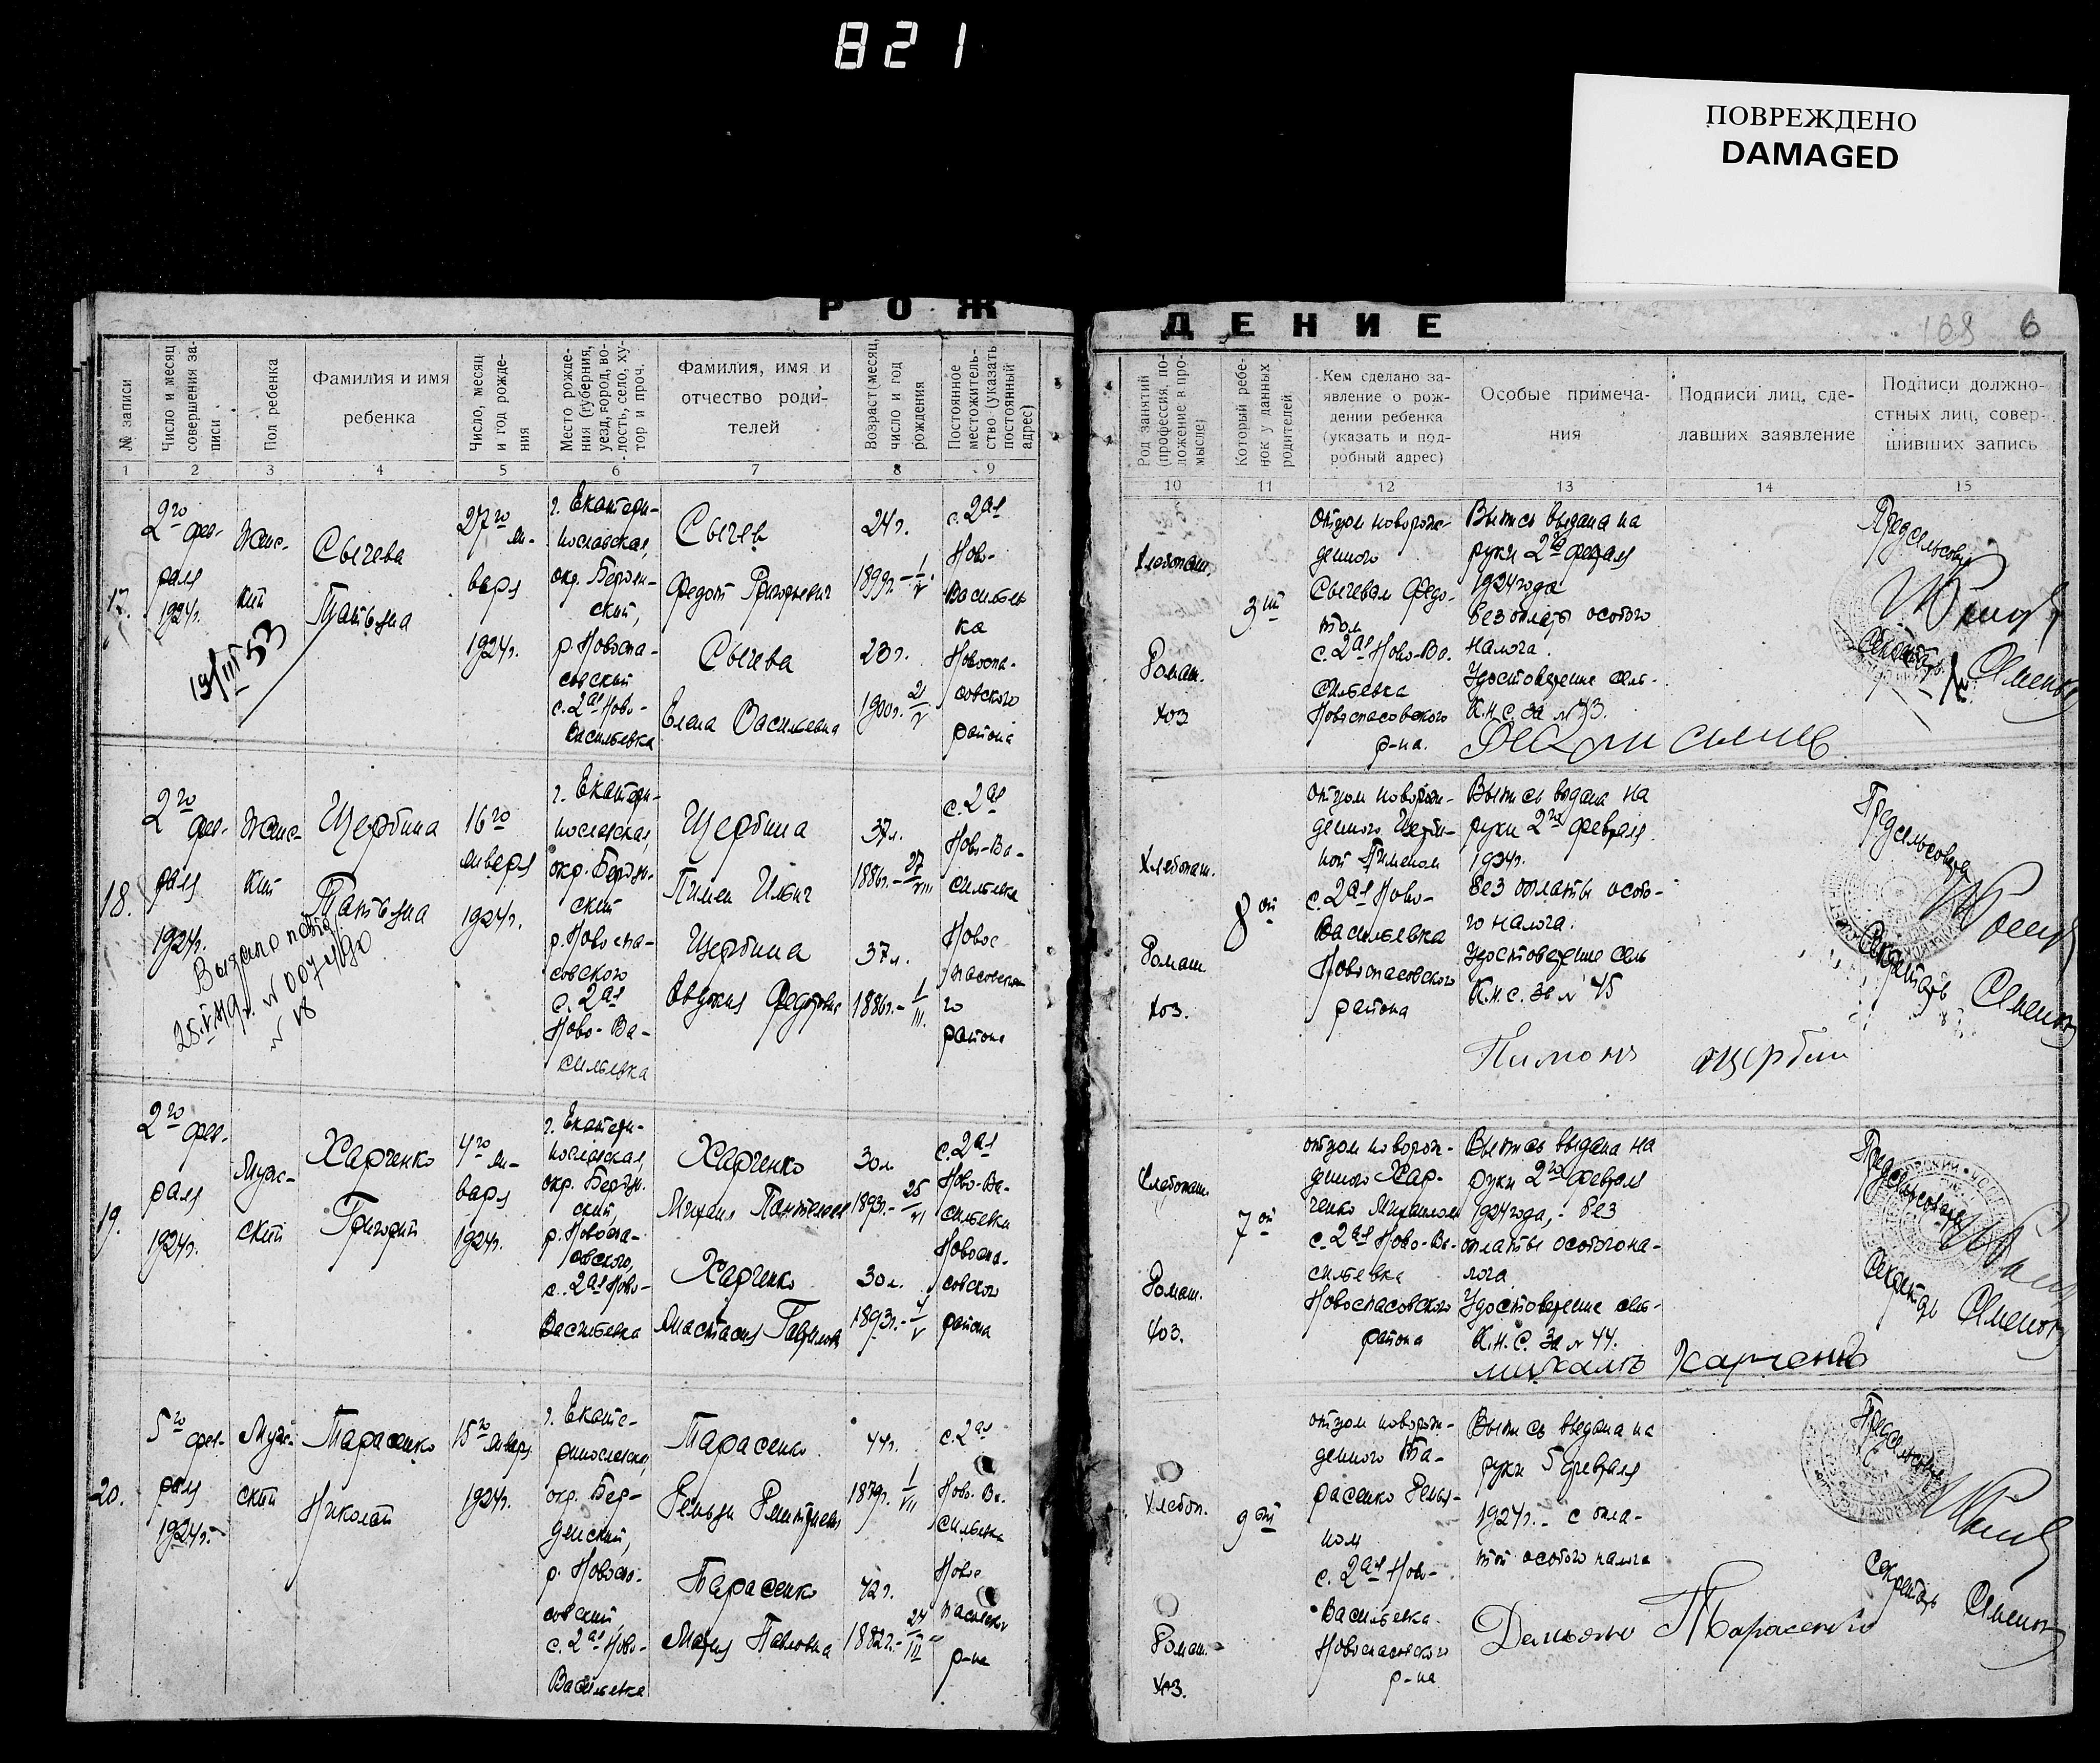 821
ПОВРЕЖДЕНО
DAMAGED
РОЖДЕНИЕ
168 6
№ записи
Число и месяц совершения записи
Пол ребенка
Фамилия и имя
ребенка
Число, месяц и год рождения
Место рождения (губерния, уезд, город, волость, село, хутор и проч.
Фамилия, имя и
отчество роди-
телей
Возраст (месяц, число и год рождения
Постоянное местожительство (указать постоянный адрес)
Род занятий (профессия, положение в промысле)
Который ребенок у данных родителей
Кем сделано за-
явление о рож-
дении ребенка
(указать и под-
робный адрес)
Особые примеча-
ния
Подписи лиц, сде-
лавших заявление
Подписи должно-
стных лиц, совер-
шивших запись
1 2 3 4 5 6 7 8 9 10 11 12 13 14 15
17.
2го фев-
раля
1924г.
19/III 53
Женс-
кий
Сычева
Татьяна
27го ян-
варя
1924г.
г. Екатери-
нославская,
окр. Бердян-
ский,
р. Новоспа-
совский
с. 2ая Ново-
Васильевка
Сычев
Федот Григорьевич
Сычева
Елена Васильевна
24г.
1899г.-1/V
23г.
1900г.-21/V
с. 2ая
Ново-
Васильев
ка
Новоспа-
совского
района
Хлебопаш.
Домаш.
хоз
3ий
Отцом новорож-
денного
Сычевым Федо-
том
с. 2ая Ново-Ва-
сильевка
Новоспасовского
р-на.
Выпись выдана на
руки 2го февраля
1924 года
без оплаты особого
налога.
Удостоверение сель-
К.Н.С. за №43.
Предсельсовета
Секретарь
18.
2го фев-
раля
1924г.
Выдано повтор
28.V.49г. №007490
№ 18
Женс-
кий
Щербина
Татьяна
16го
января
1924г.
г. Екатери-
нославская,
окр. Бердян-
ский
р. Новоспа-
совского
с. 2ая
Ново-Ва-
сильевка
Щербина
Пимен Ильич
Щербина
Евдокия Федоровна
37л.
1886г.-27/VIII
37л.
1886г.-1/III.
с. 2ая
Ново-Ва-
сильевка
Новос-
пасовско
го
района
Хлебопаш.
Домаш
хоз.
8ой
отцом новорож-
денного Щерби-
ной Пименом
с. 2ая Ново-
Васильевка
Новоспасовского
района
Выпись выдана на
руки 2го февраля
1924г.
без оплаты особо-
го налога.
Удостоверение сель
К.Н.С. за № 45
Пимонъ щербин
Предсельсовета
Секретарь
19.
2го фев-
раля
1924г.
Муж-
ской
Харченко
Григорий
4го ян-
варя
1924г.
г. Екатери-
нославская,
окр. Бердян-
ский,
р. Новоспа-
совского,
с. 2ая Ново-
Васильевка
Харченко
Михаил Пантелеев
Харченко
Анастасия Гаврилов
30л
1893г.-25/VI
30л.
с. 2ая
Ново-Ва-
сильевки
Новоспа-
совского
района
Хлебопаш.
Домаш.
хоз.
7ой
отцом новорож-
денного Хар-
ченко Михаилом
с. 2ая Ново-Ва-
сильевка
Новоспасовского
района
Выпись выдана на
руки 2го февраля
1924 года, - без
оплаты особого на-
лога
Удостоверение сель-
К.Н.С. за № 44.
михаилъ харченко
Предсельсовета
Секретарь
20.
5го фев-
раля
1924г.
Муж-
ской
Тарасенко
Николай
15го января
1924г.
г. Екате-
ринославская,
окр. Бер-
дянский,
р. Новоспа-
совский,
с. 2ая Ново-
Васильевка
Тарасенко
Тарасенко
Мария Павловна
44г.
1879г.
42г.
1882г.
с. 2ая
Ново-Ва-
сильевка
Новос
пасовского
р-на
Хлебоп.
Домаш.
хоз.
9ый
отцом новорож-
денного Та-
расенко Демья-
ном
с. 2ая Ново-
Васильевка
Новоспасовского
р-на
Выпись выдана на
руки 5 февраля
1924г. - с опла-
той особого налога
Демьяно Тарасенко
Предсельсовета
Секретарь